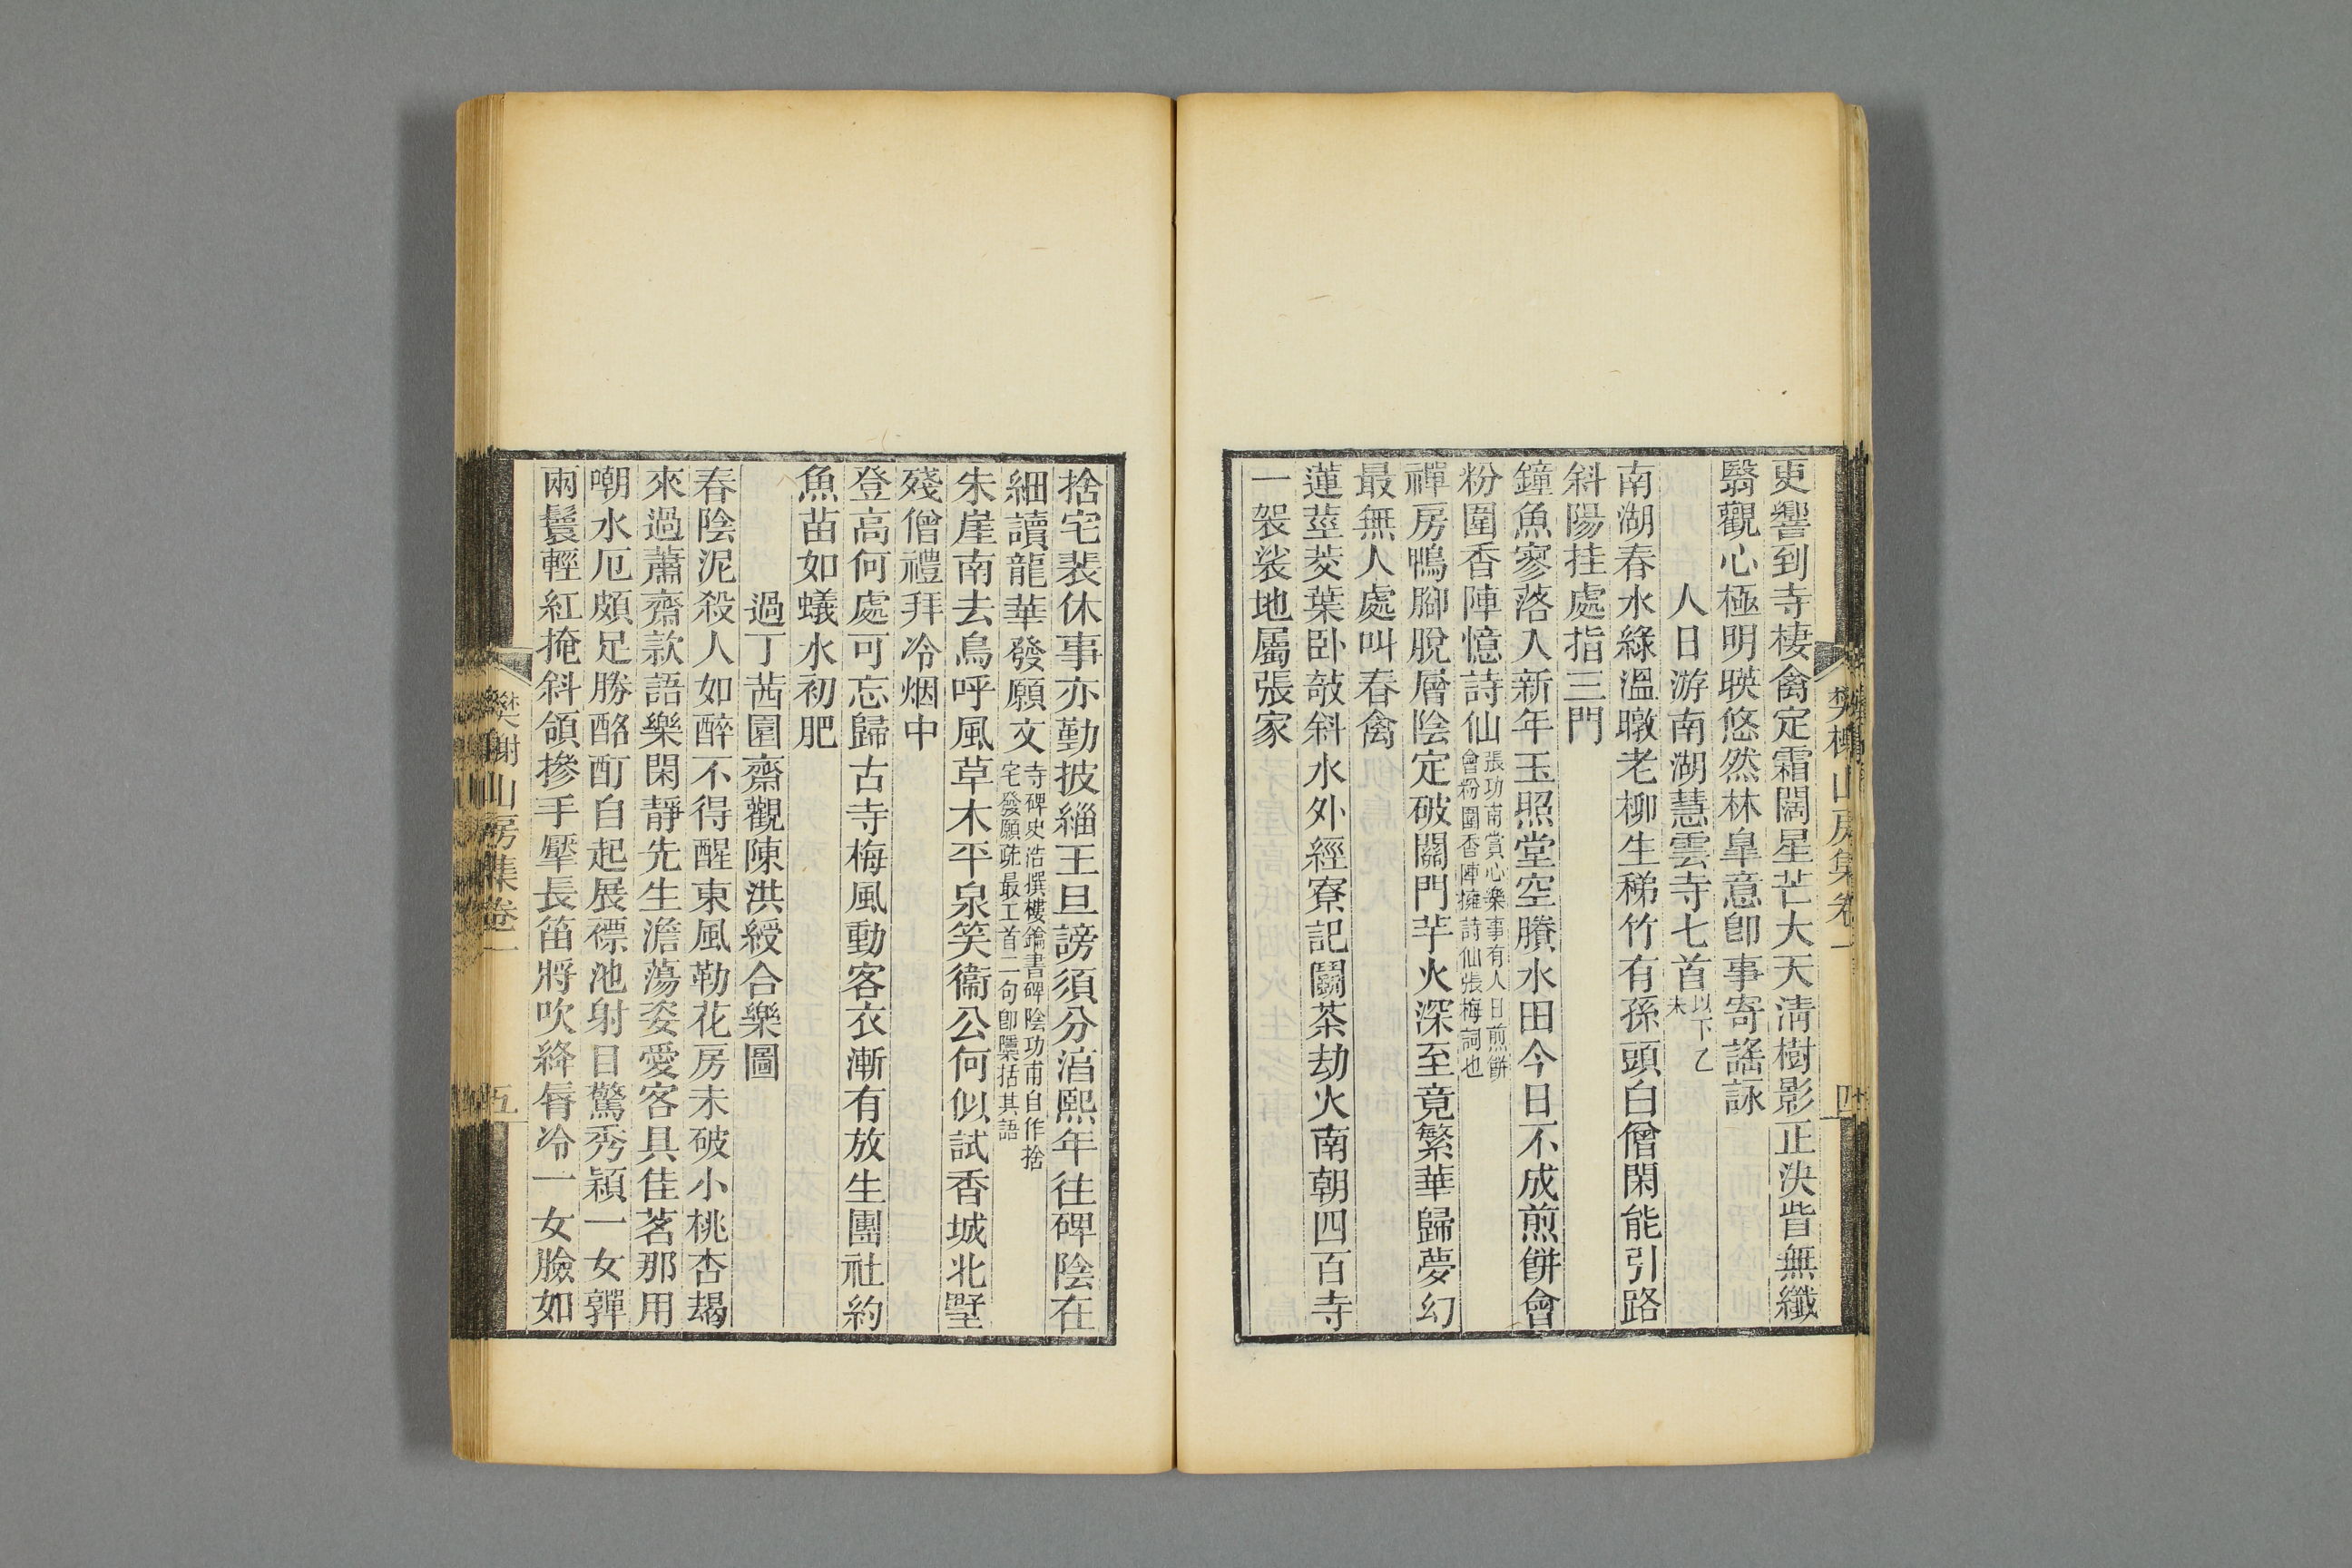 樊榭山房集卷一
四
更響到寺棲禽定霜闊星芒大天淸樹影正決眥無纖
翳觀心極明瑛悠然林臯意卽事寄謠詠
人日游南湖慧雲寺七首以下乙未
南湖春水綠溫暾老柳生稊竹有孫頭白僧閑能引路
斜陽挂處指三門
鐘魚寥落入新年玉照堂空賸水田今日不成煎餅會
粉圍香陣憶詩仙張功甫賞心樂事有人日煎餅會粉圍香陣擁詩仙張梅詞也
禪房鴨腳脫層陰定破關門芋火深至竟繁華歸夢幻
最無人處叫春禽
蓮莖茭葉臥攲斜水外經寮記鬭茶劫火南朝四百寺
一袈裟地屬張家
捨宅裴休事亦勤披緇王旦謗須分湻熙年往碑陰在
細讀龍華發願文寺碑史浩撰樓鑰書碑陰功甫自作捨宅發願疏最工首二句卽檃括其語
朱崖南去鳥呼風草木平泉笑衞公何似試香城北墅
殘僧禮拜冷烟中
登高何處可忘歸古寺梅風動客衣漸有放生團社約
魚苗如蟻水初肥
過丁茜園齋觀陳洪綬合樂圖
春陰泥殺人如醉不得醒東風勒花房未破小桃杏朅
來過蕭齋款語樂閑靜先生澹蕩姿愛客具佳茗那用
嘲水厄頗足勝酩酊自起展褾池射目驚秀穎一女嚲
兩鬟輕紅掩斜領摻手擪長笛將吹絳脣冷一女臉如
樊榭山房集卷一
五